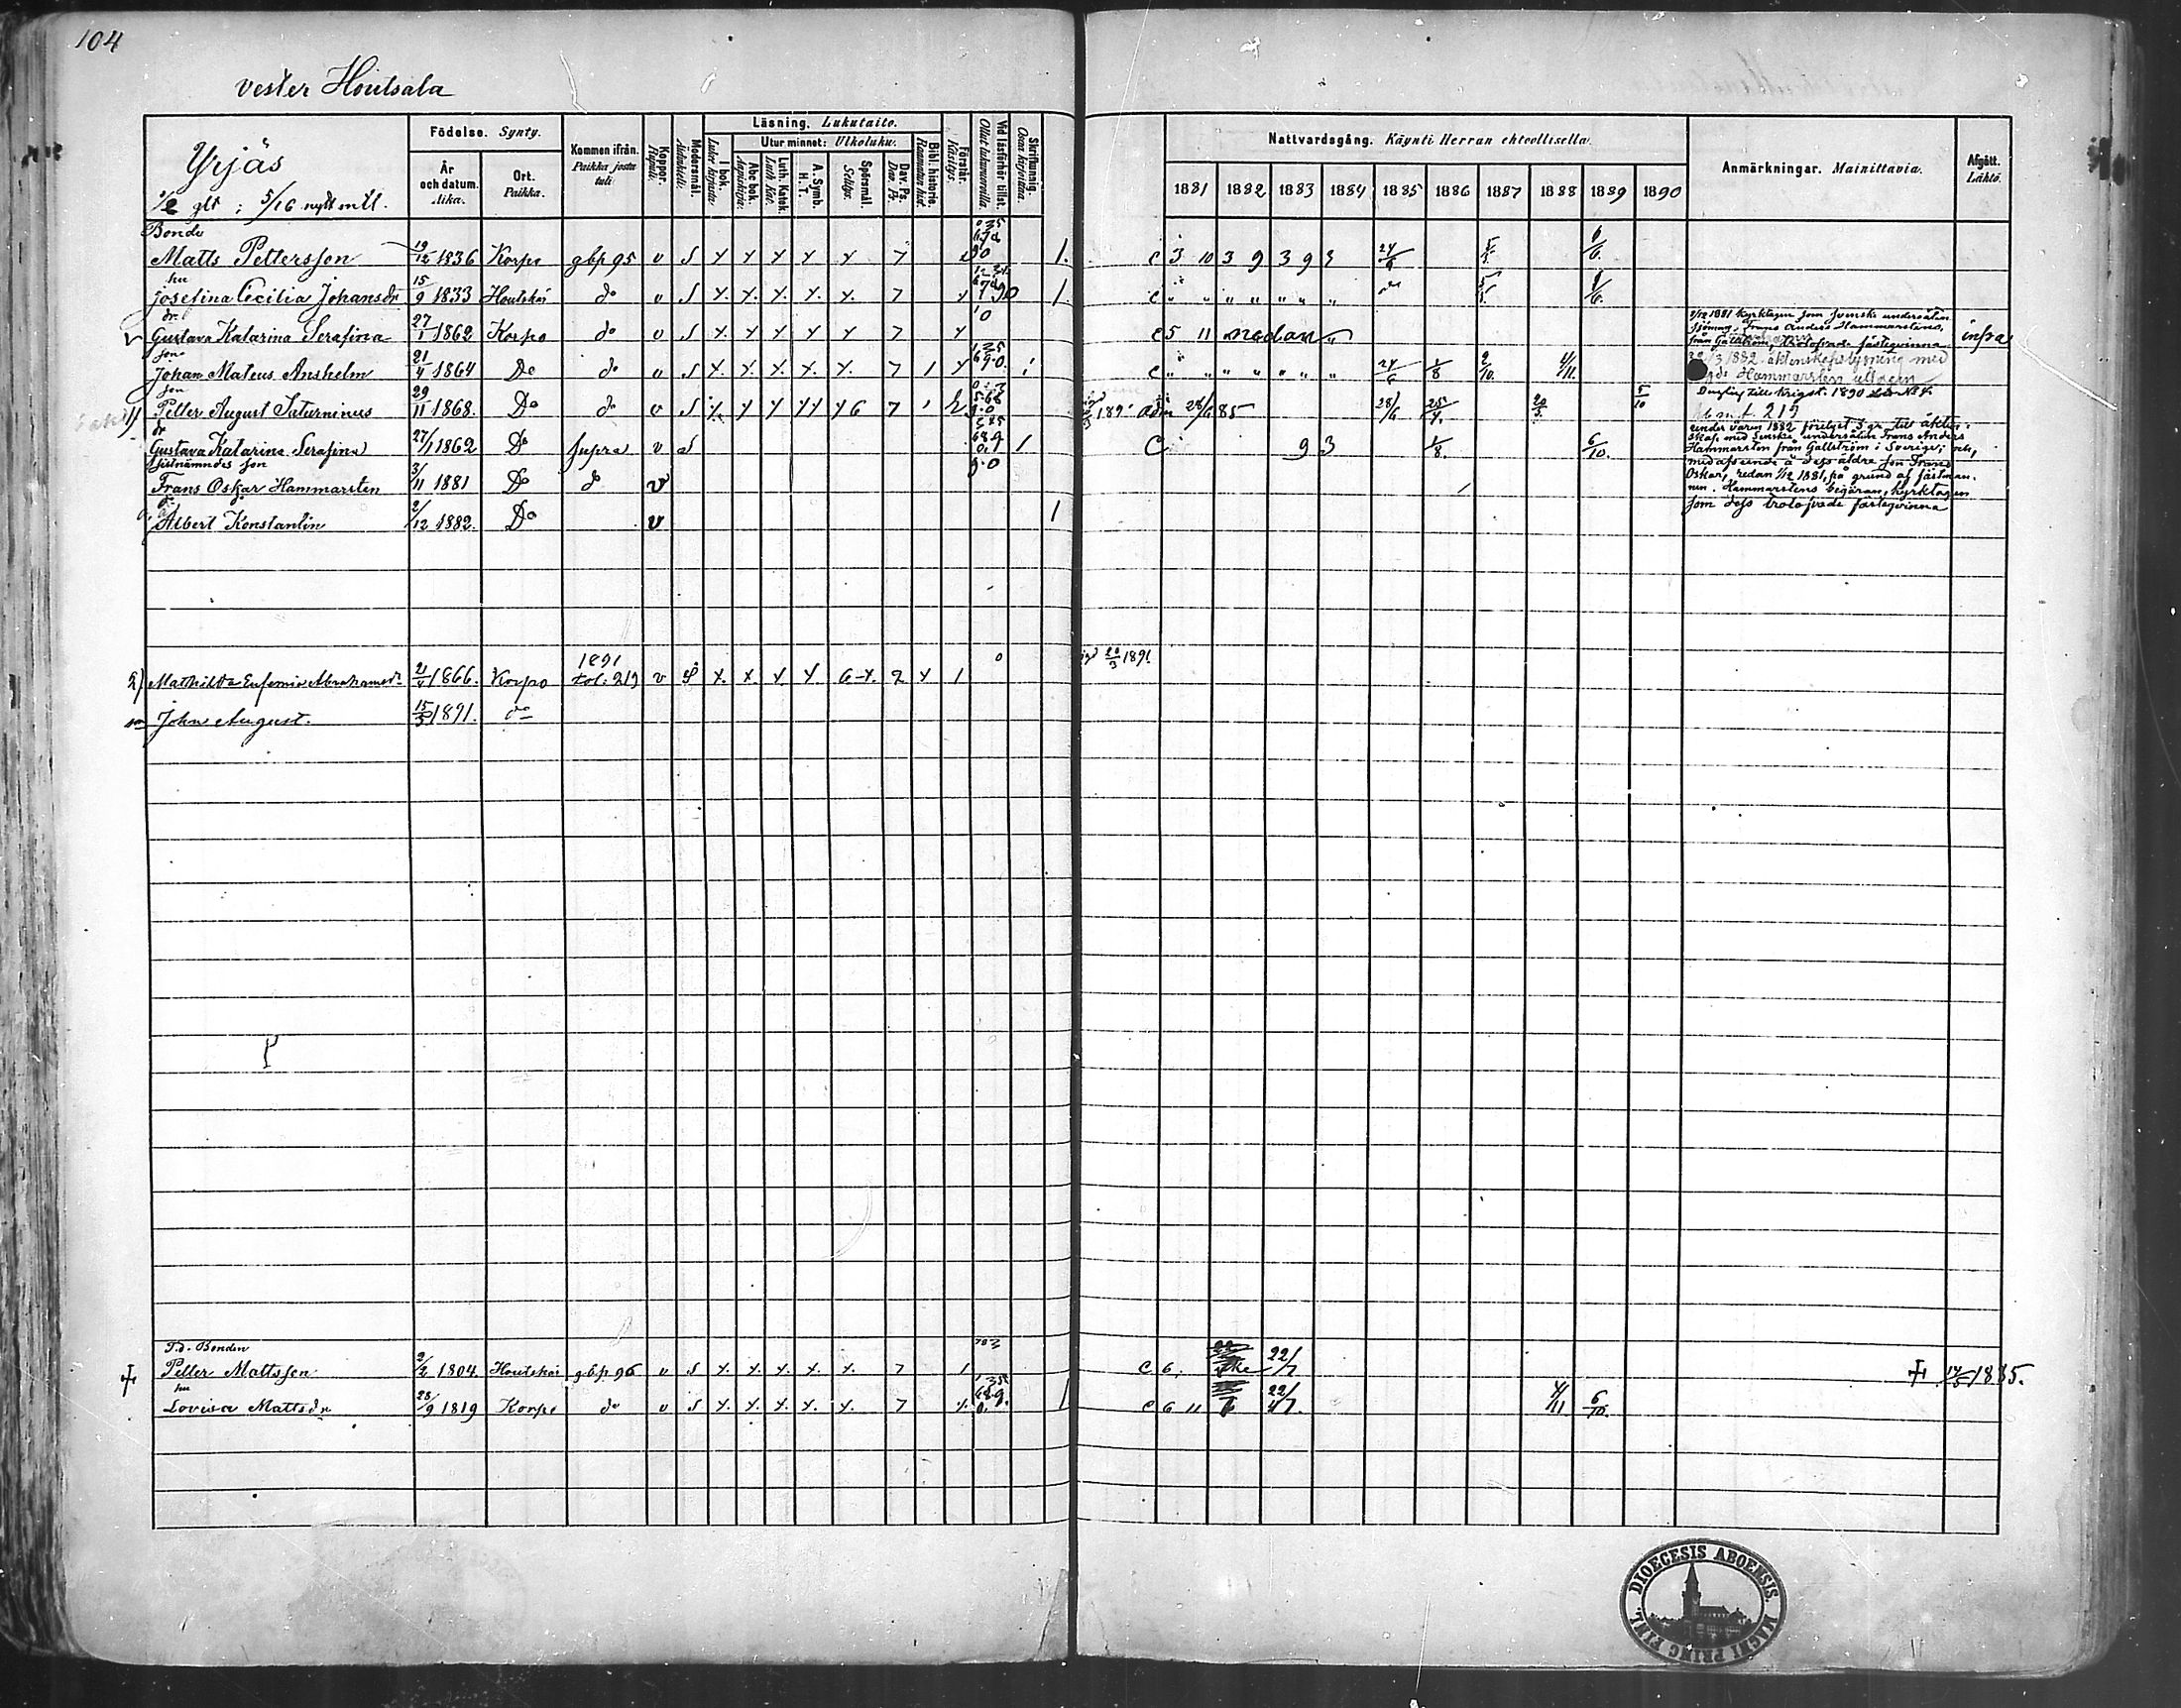 104
vester Houtsala
Yrjäs
glt ; 5/16 nytt mtl.
Födelse. Synty.
År och datum. Aika.
Ort. Paikka.
Kommen ifrån. Paikka josta tuli.
Koppor. Rupuli.
Modersmål. Äidinkieli.
Läsning. Lukutaito.
I bok. Luku kirjasta.
Utur minnet: Ulkoluku.
Abc bok. Aapiskirja.
Luth. Katek. Luth. Kat.
A. Symb. H. T.
Spörsmål. Selitys.
Dav. Ps. Dav. Ps.
Bibl. historie. Raamatun hist.
Förstår. Käsitys.
Vid läsförhör tillst. Ollut lukusijoilla.
Skrifkunnig. Osaa kirjoittaa.
Nattvardsgång. Käynti Herran ehtoollisella.
1881 1882 1883 1884 1885 1886 1887 1888 1889 1890
Anmärkningar. Mainittavia.
Afgått. Lähtö.
Bonde
Matts Pettersson 19/12 1836 Korpo gbp 95 v S 7 1. C 3 10 3 9 3 9 3 24/6 6/6.
hu
Josefina Cecilia Johansdr 15/9 1833 Houtskär do v S 7 1. C
dr.
Gustava Katarina Serafina 27/1 1862 Korpo do v S 7 C 5 11 nedan infra
son
Johan Mateus Anshelm 21/4 1864 Do do v S 7 1 C 24/6 1/8 2/10. 4/11.
son
1) Petter August Saturninus 29/11 1868. Do do v S 7 adm 28/6 85 28/6 25/4. 20/5. 5/10
dr
Gustava Katarina Serafina 27/1 1862 Do supra v S 1 C 9 3 1/8. 6/10.
sistnämndes son
Frans Oskar Hammarsten 3/11 1881 Do do v
Albert Konstantin 2/12 1882. Do v 1
1881 kyrktagen som svenske undersåten
sjöman, Frans Anders Hammarstens,
från Gällström, trolofvade fästeqvinna
3/1882 äktenskapslysning med
Hammarsten
krigst. 1890
219
under våren 1882 förelyst 3 gr till äkten-
skap med svenske undersåten Frans Anders
Hammarsten från Gällström i Sverige; och,
med afseende å dess äldre son Frans
Oskar, redan 1/12 1881, på grund af fästman-
nen Hammarstens begäran, kyrktagen
som dess trolofvade fästeqvinna
1891
2) Mathilda Eufemia Abrahamsdr 1866. Korpo fol: 219 v 20/3 1891.
son John August. 15/5 1891. do
F.d. Bonden
† Petter Mattsson 2/2 1804. Houtskär gbp. 96 v S 7 1 C 6 22/7 † 1885.
hu
Lovisa Mattsdr 28/9 1819 Korpo do v S 7 1 C 6 11 22/7 4/11 6/10.
DIOECESIS ABOENSIS. MAGNI PRINC. FINL.